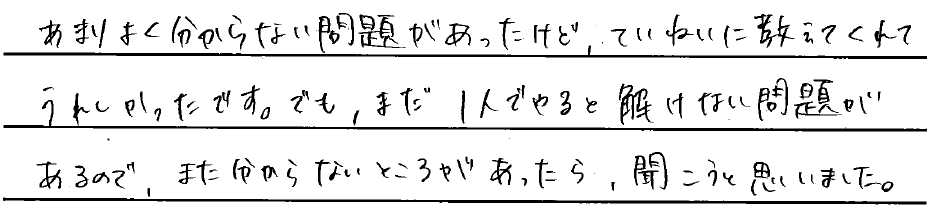 あまりよく分からない問題があったけど，ていねいに教えてくれて
うれしかったです。でも，まだ1人でやると解けない問題が
あるので，また分からないところがあったら，聞こうと思いました。